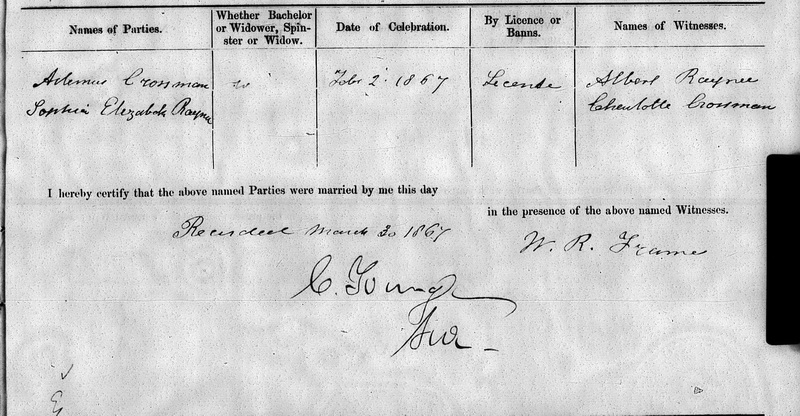 Names of Parties.
Whether Bachelor
or Widower, Spin-
ster or Widow.
Date of Celebration.
By Licence or
Banns.
Names of Witnesses.
Artemus Crossman
Feb. 2. 1867
Licence
Albert Raynor
Sophia Elizabeth Raynor
Charlotte Crossman
I hereby certify that the above named Parties were married by me this day
in the presence of the above named Witnesses.
Recorded March 30 1867
W. R. Frame
C. Young